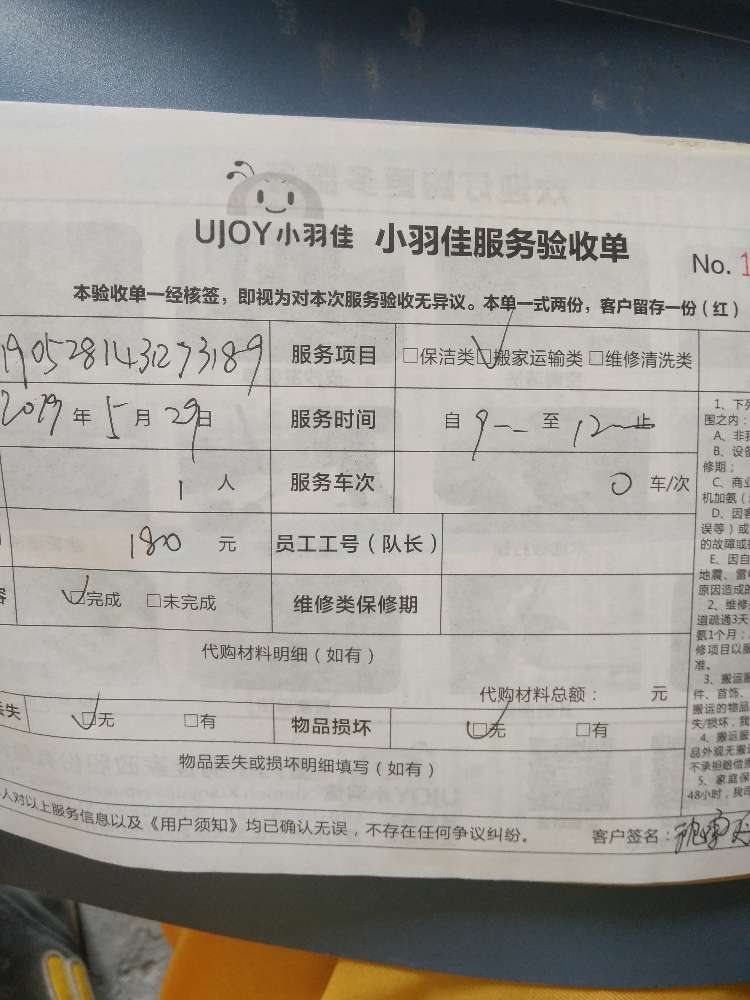 UJOY小羽佳 小羽佳服务验收单
No. 1
本验收单一经核签，即视为对本次服务验收无异议。本单一式两份，客户留存一份（红）
服务项目 □保洁类 □搬家运输类 □维修清洗类
2019年5月29日 服务时间 自 9 至 12 止
1人 服务车次 0 车/次
180元 员工工号（队长）
□完成 □未完成 维修类保修期
代购材料明细（如有）
代购材料总额： 元
丢失 □无 □有 物品损坏 □无 □有
物品丢失或损坏明细填写（如有）
人对以上服务信息以及《用户须知》均已确认无误，不存在任何争议纠纷。 客户签名：
1、下列
围之内：
A、非我
B、设备
修期；
C、商业
机加氨（
D、因客
误等）或
的故障或
E、因自
地震、雷
原因造成的
2、维修
道疏通3天
氨1个月；
修项目以服
准。
3、搬运服
件、首饰、
搬运的物品
失/损坏，我
4、搬运服
品外观无搬
不承担赔偿责
5、家庭保
48小时，我司